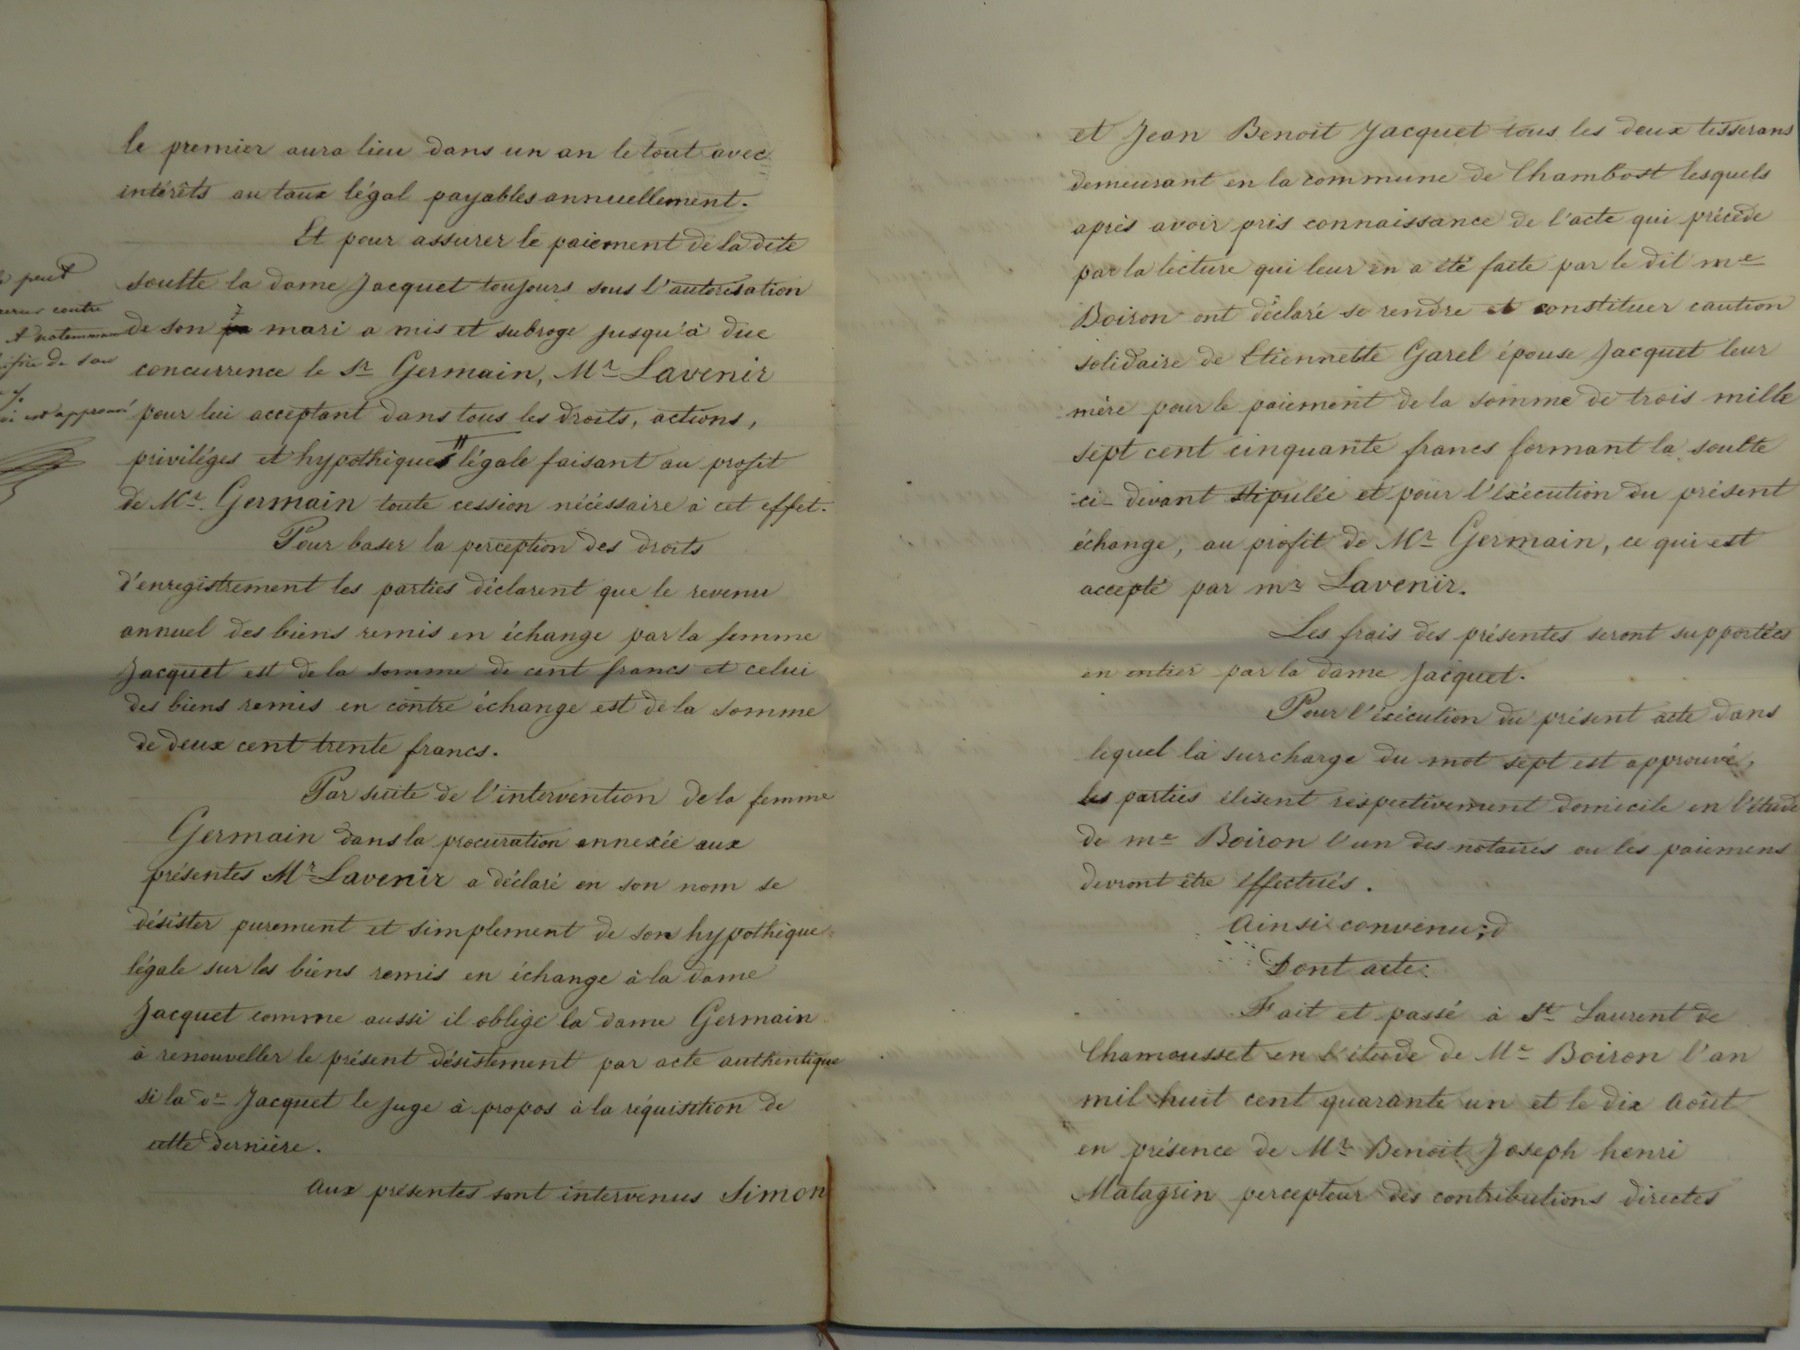 le premier aura lieu dans un an le tout avec
intérêts au taux légal payables annuellement.
Et pour assurer le paiement de la dite
soulte la dame Jacquet toujours sous l'autorisation
de son mari a mis et subroge jusqu'à due
concurrence le Sr Germain, Mr Lavenir
pour lui acceptant dans tous les droits, actions,
priviléges et hypothèques légale faisant au profit
de Mr. Germain toute cession nécéssaire à cet effet.
Pour baser la perception des droits
d'enregistrement les parties déclarent que le revenu
annuel des biens remis en échange par la femme
Jacquet est de la somme de cent francs et celui
des biens remis en contre échange est de la somme
de deux cent trente francs.
Par suite de l'intervention de la femme
Germain dans la procuration annexée aux
présentes Mr Lavenir a déclaré en son nom se
désister purement et simplement de son hypothèque
légale sur les biens remis en échange à la dame
Jacquet comme aussi il oblige la dame Germain
à renouveller le présent désistement par acte authentique
si la de Jacquet le juge à propos à la réquisition de
cette dernière.
aux présentes sont intervenus Simon
peut
contre
et notamment
de son
est approuvé
et Jean Benoit Jacquet tous les deux tisserans
demeurant en la commune de Chambost lesquels
après avoir pris connaissance de l'acte qui précède
par la lecture qui leur en a été faite par le dit me
Boiron ont déclaré se rendre et constituer caution
solidaire de Etiennette Garel épouse Jacquet leur
mère pour le paiement de la somme de trois mille
sept cent cinquante francs formant la soulte
ci-devant stipulée et pour l'éxécution du présent
échange, au profit de Mr Germain, ce qui est
accepté par mr Lavenir.
Les frais des présentes seront supportées
en entier par la dame Jacquet.
Pour l'éxécution du présent acte dans
lequel la surcharge du mot sept est approuvé,
les parties élisent respectivement domicile en l'étude
de me Boiron l'un des notaires ou les paiemens
devront être éffectués.
Ainsi convenu; d
Dont acte:
Fait et passé à St Laurent de
Chamousset en l'étude de Me Boiron l'an
mil huit cent quarante un et le dix Août
en présence de Mr Benoit Joseph henri
Matagrin percepteur des contributions directes